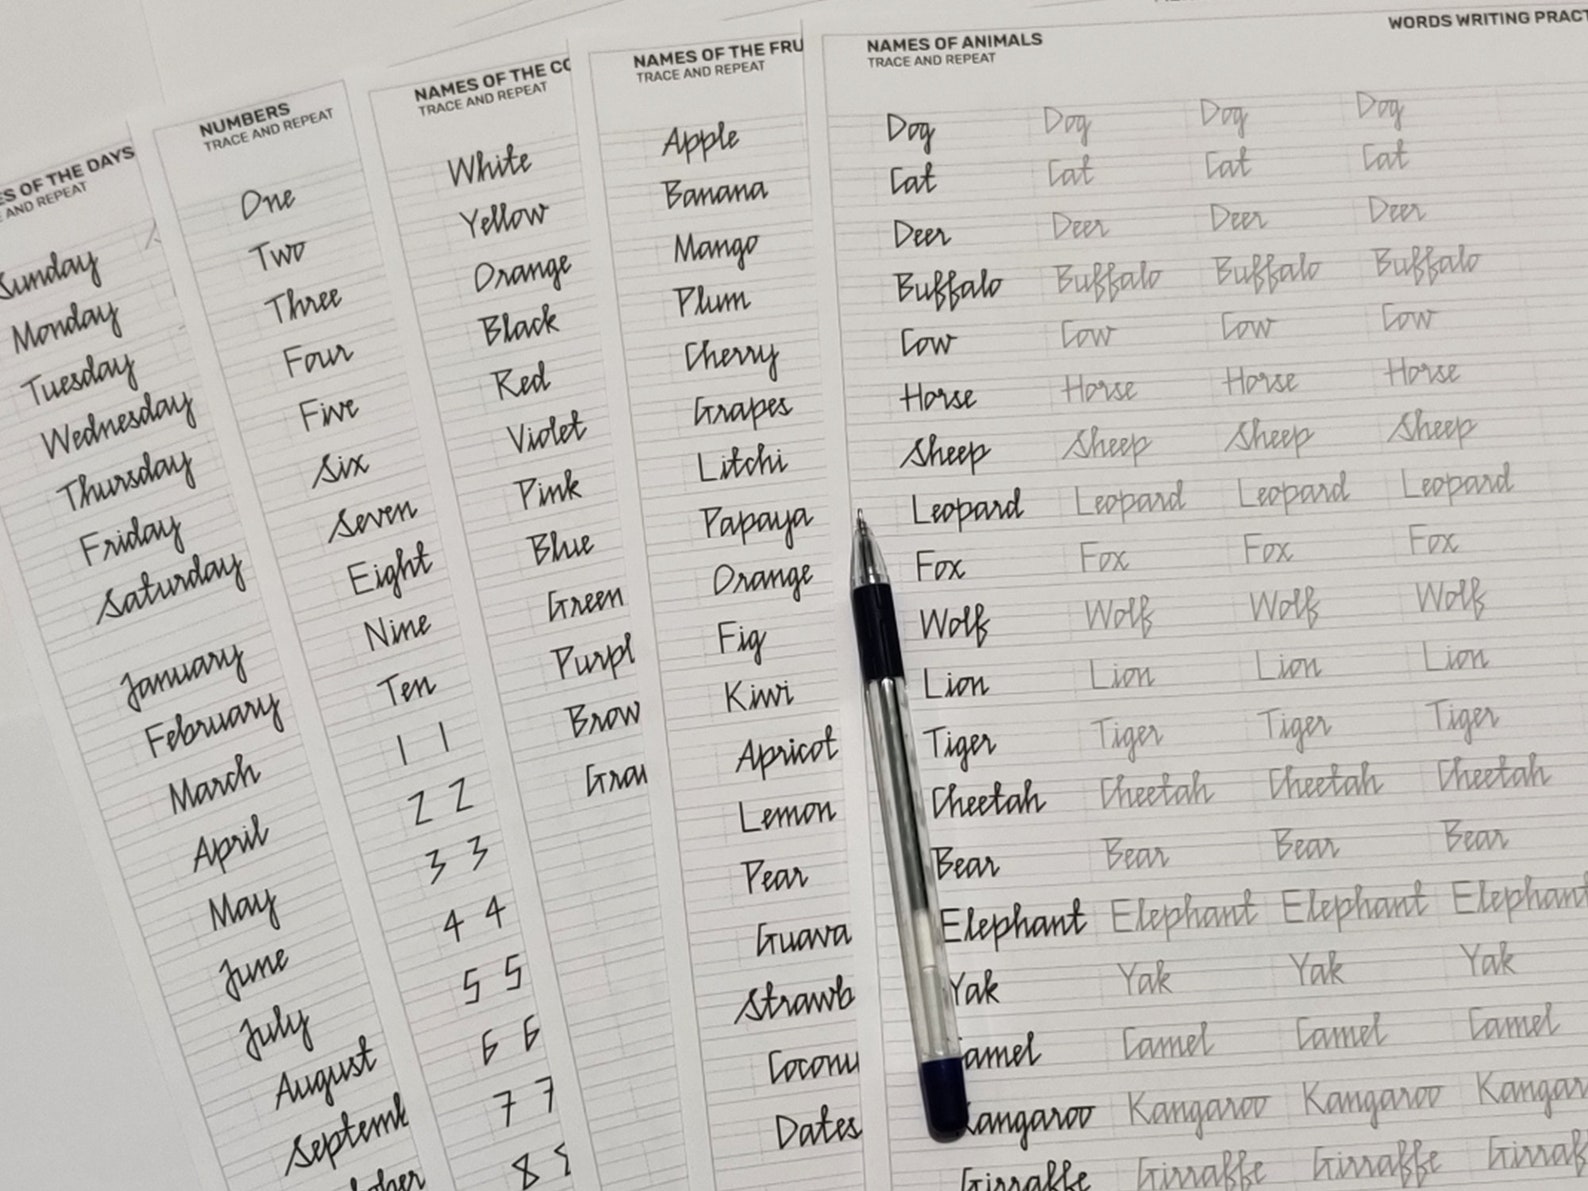 WORDS WRITING PRACT
ES OF THE DAYS
E AND REPEAT
Sunday
Monday
Tuesday
Wednesday
Thursday
Friday
Saturday
January
February
March
April
May
June
July
August
Septemb
tober
NUMBERS
TRACE AND REPEAT
One
Two
Three
Four
Five
Six
Seven
Eight
Nine
Ten
1 1
2 2
3 3
4 4
5 5
6 6
7 7
8
NAMES OF THE CO
TRACE AND REPEAT
White
Yellow
Orange
Black
Red
Violet
Pink
Blue
Green
Purpl
Brow
Gra
NAMES OF THE FRU
TRACE AND REPEAT
Apple
Banana
Mango
Plum
Cherry
Grapes
Litchi
Papaya
Orange
Fig
Kiwi
Apricot
Lemon
Pear
Guava
Strawb
Coconu
Dates
NAMES OF ANIMALS
TRACE AND REPEAT
Dog Dog Dog Dog
Cat Cat Cat Cat
Deer Deer Deer Deer
Buffalo Buffalo Buffalo Buffalo
Cow Cow Cow Cow
Horse Horse Horse Horse
Sheep Sheep Sheep Sheep
Leopard Leopard Leopard Leopard
Fox Fox Fox Fox
Wolf Wolf Wolf Wolf
Lion Lion Lion Lion
Tiger Tiger Tiger Tiger
Cheetah Cheetah Cheetah Cheetah
Bear Bear Bear Bear
Elephant Elephant Elephant Elephant
Yak Yak Yak Yak
amel Camel Camel Camel
Kangaroo Kangaroo Kangaroo Kangar
Girraffe Girraffe Girraffe Girraf